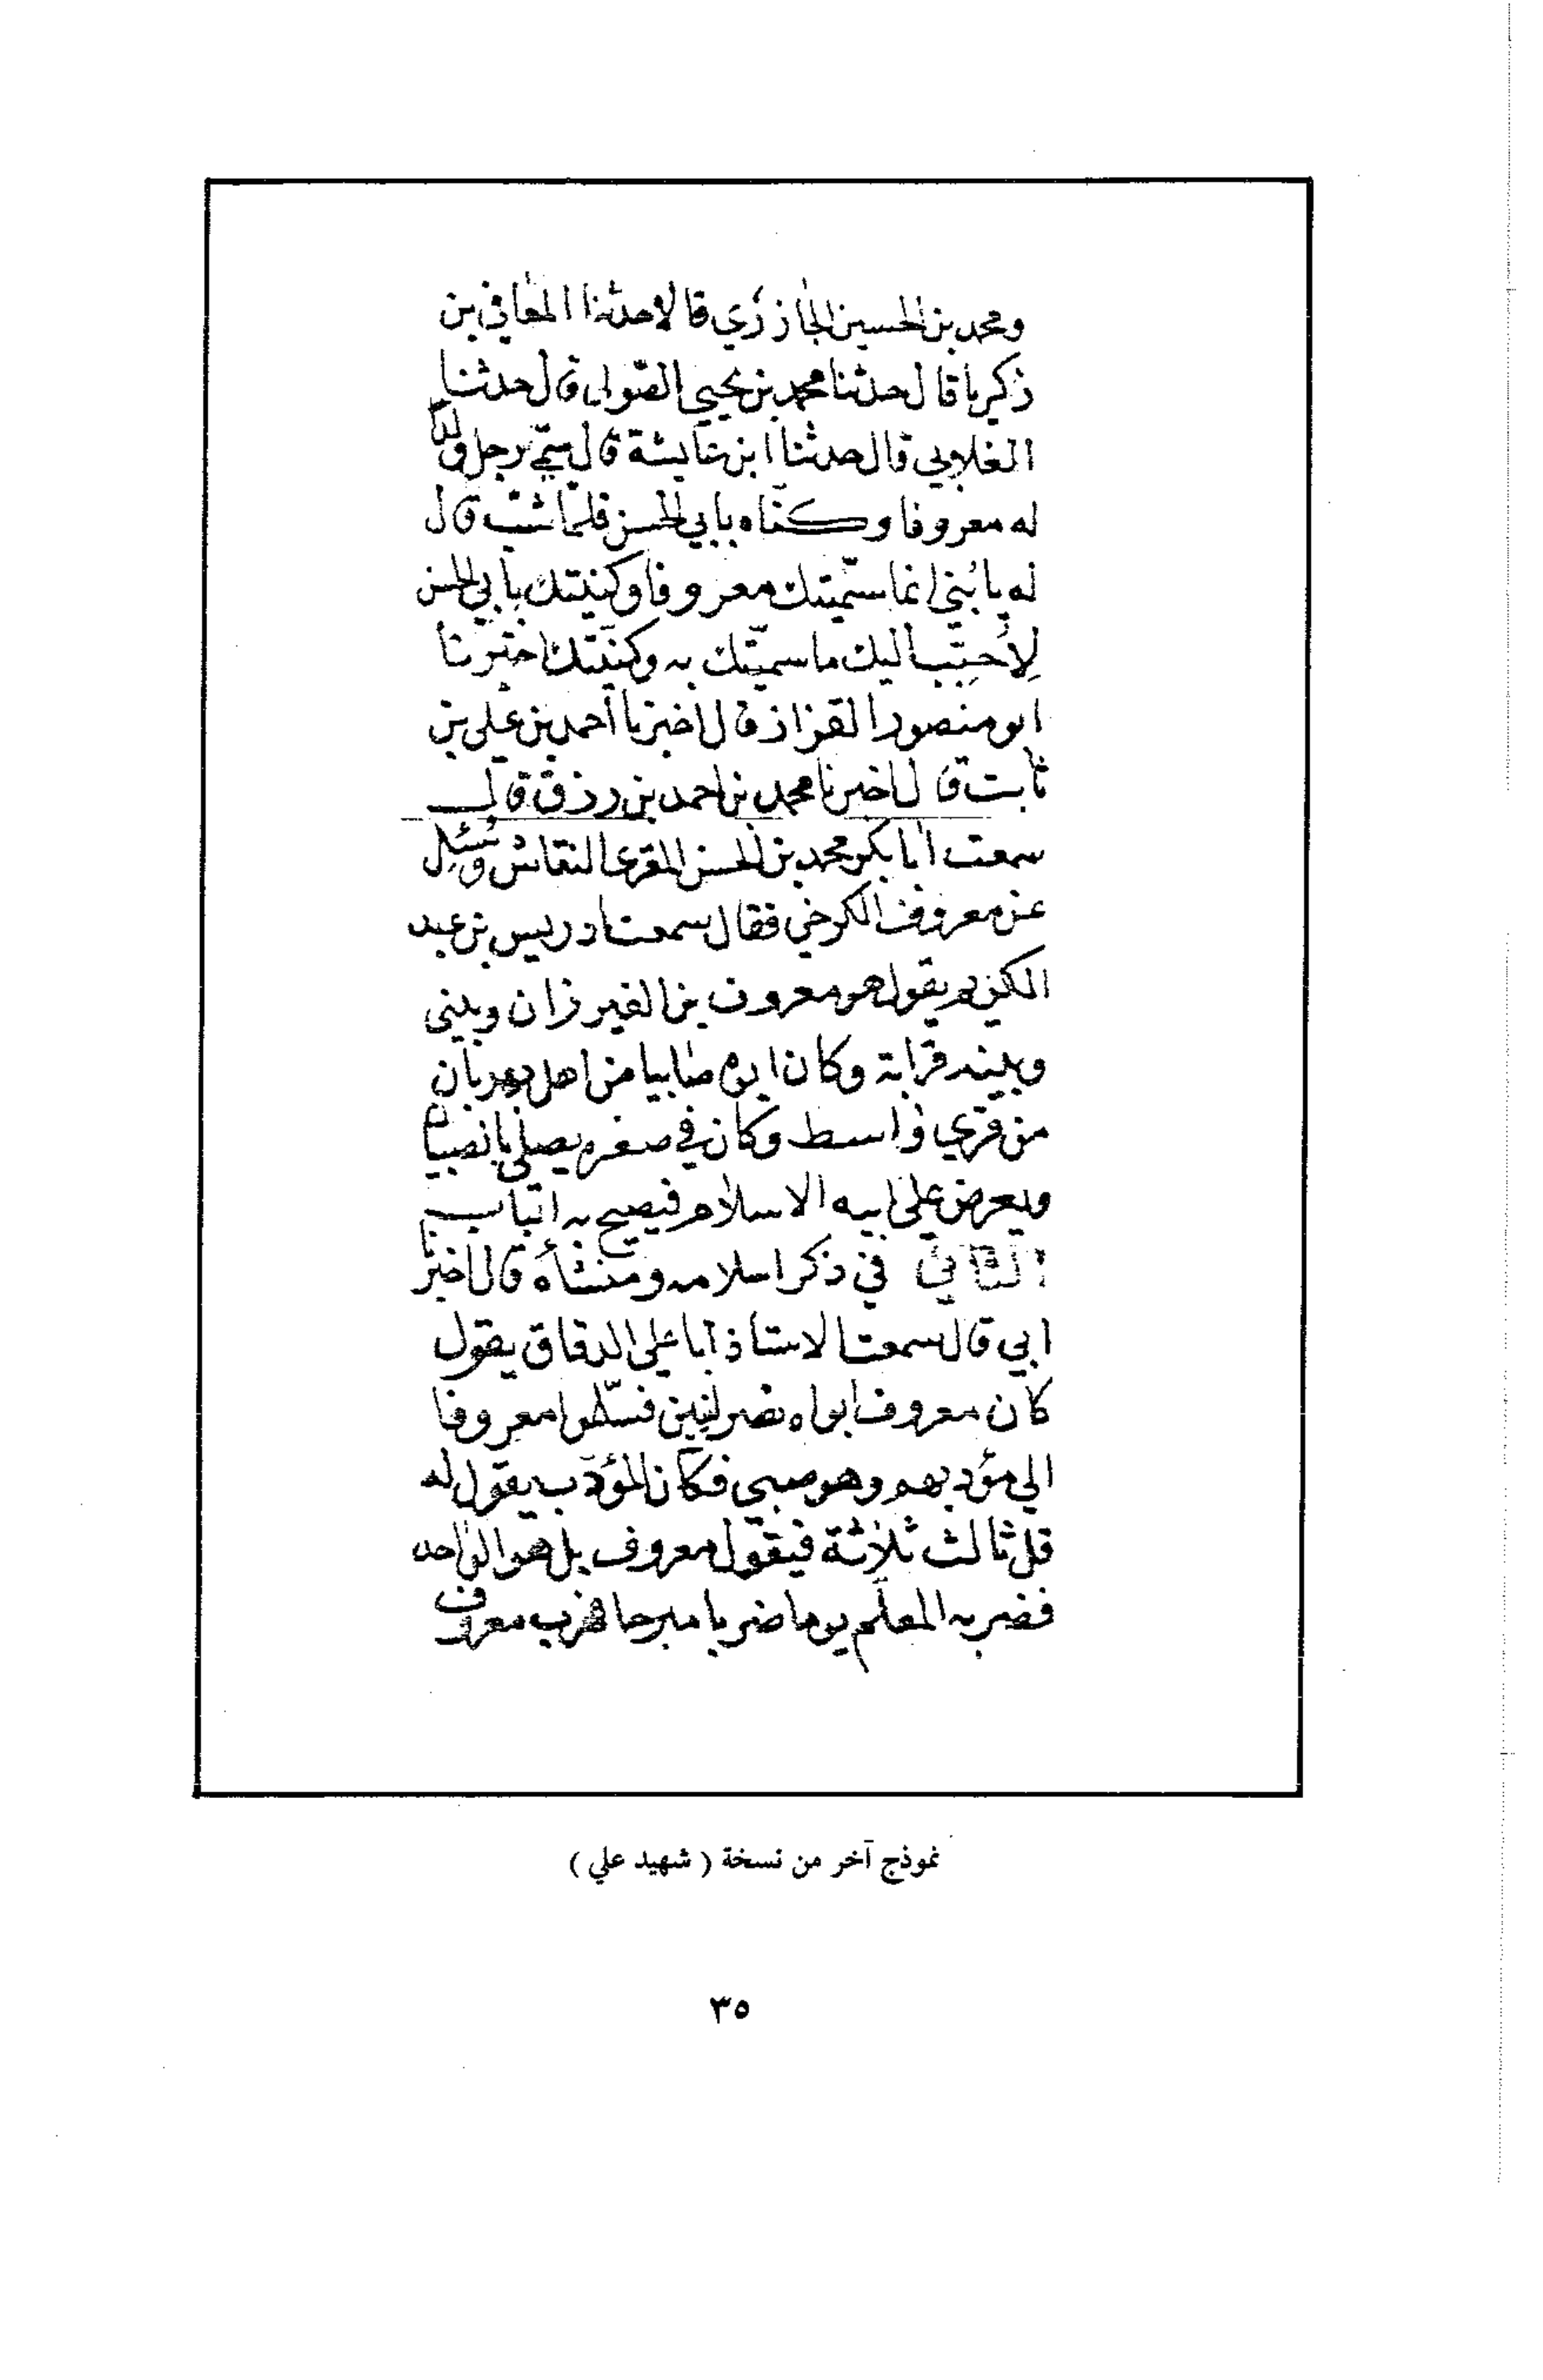 ومحمد بن الحسين الجازري قالا حدثنا المعافي بن
زكريا قال حدثنا محمد بن يحيي الصّولي قال حدثنا
الغلابي قال حدثنا ابن عايشة قال سمّي رجل ولدا
له معروفا وكنّاه بابي الحسن فلمّا شبّ قال
له يا بُنيّ انما سمّيتك معروفا وكنيتك بابي الحسن
لِأُحبِّب اليك ما سميّتك به وكنّيتك اخبرنا
ابو منصور القزاز قال اخبرنا أحمد بن علي بن
ثابت قال اخبرنا محمد بن احمد بن رزق قال
سمعت ابا بكر محمد بن الحسن المقري النقاش وسُئِل
عن معروف الكرخي فقال سمعت ادريس بن عبد
الكريم يقول هو معروف بن الفيرزان وبيني
وبينه قرابة وكان ابوه صابيا من اهل نهربان
من قري واسط وكان في صغره يصلي بالصبيان
ويعرض علي ابيه الاسلام فيصيح به الباب
الثاني في ذكر اسلامه ومنشأه قال اخبرنا
ابي قال سمعت الاستاذ أبا علي الدقاق يقول
كان معروف ابواه نصرانيين فسلّموا معروفا
الي مؤدبهم وهو صبي فكان المؤدّب يقول له
قل ثالث ثلاثة فيقول معروف بل هو الواحد
فضربه المعلّم يوما ضربا مبرحا فهرب معروف
نموذج آخر من نسخة ( شهيد علي )
٣٥